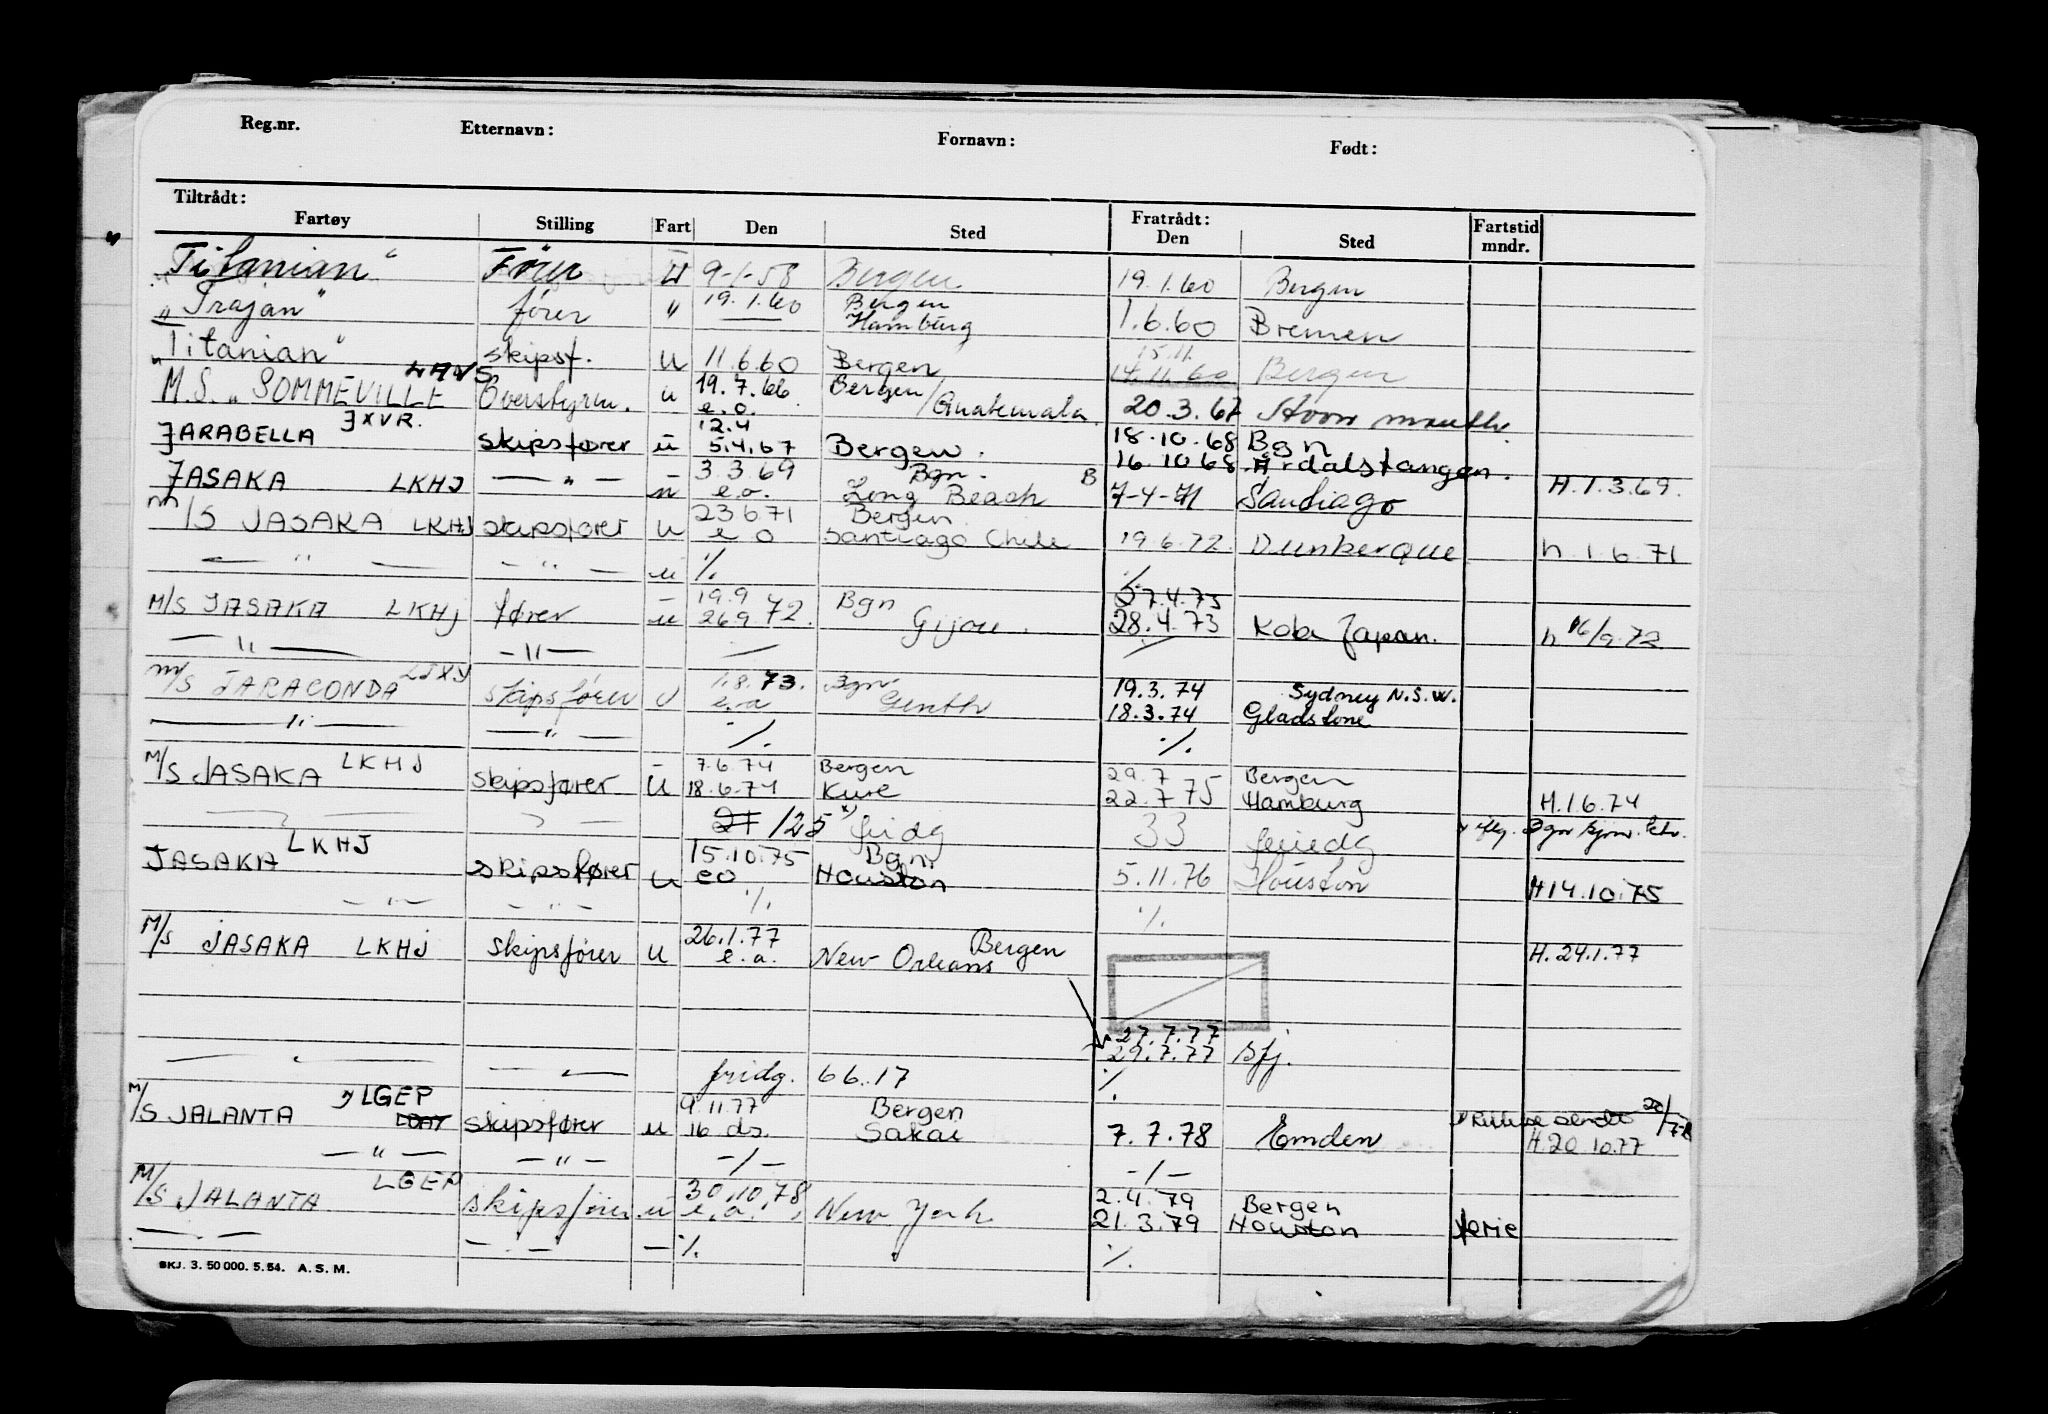 Reg.nr. Etternavn: Fornavn: Født:
Tiltrådt: Fratrådt: Fartstid
Fartøy Stilling Fart Den Sted Den Sted mndr.
"Titanian" Fører U 9-1-58 Bergen 19.1.60 Bergen
"Trajan" fører " 19.1.60 Bergen Hamburg 1.6.60 Bremen
"Titanian" skipsf. u 11.6.60 Bergen 15.11. 14.11.60 Bergen
M.S. "SOMMEVILLE Overstyrm. u 19.7.66 e.o. Bergen/Guatemala 20.3.67
JXVR.
JARABELLA skipsfører u 12.4 5.4.67 Bergen. 18.10.68 Bgn
16.10.68 Årdalstangen.
JASAKA LKHJ — " — u 3.3.69 e.o. Bgn. Long Beach B 7-4-71 Santiago H.1.3.69.
m/S JASAKA LKHJ skipsfører u 23671 e o Bergen Santiago Chile 19.6.72. Dunkerque h.1.6.71
— " — — " — u ·/. ·/.
M/S JASAKA LKHJ fører u 19.9 269 72. Bgn Gijou. 27.4.73
28.4.73 Kobe Japan. h 16/9.72
— " — — " —
m/S JARACONDA LJXY skipsfører u 1.8.73. e.o Bgn. Genth 19.3.74 Sydney N.S.W.
18.3.74 Gladstone
— " — — " — ·/. ·/.
M/S JASAKA LKHJ skipsfører u 7.6.74 Bergen 29.7 Bergen
18.6.74 Kure 22.7.75 Hamburg H.1.6.74
21/25 fridg 33 feriedg
JASAKA LKHJ skipsfører u 15.10.75 Bgn.
eo Houston 5.11.76 Houston H14.10.75
— " — — " — ·/. ·/.
M/S JASAKA LKHJ skipsfører u 26.1.77 e.o. Bergen New Orleans H.24.1.77
27.7.77
29.7.77 Sfj.
— " — — " — fridg. 66.17 ·/.
M/S JALANTA LGEP skipsfører u 9.11.77 Bergen
16 ds. Sakai 7.7.78 Emden H.20 10.77
— " — — " — -/- -/-
M/S JALANTA LGEP skipsfører u 30.10.78 e.o. New York 2.4.79 Bergen
21.3.79 Houston ferie
— " — — " — — ·/. ·/.
SKJ. 3. 50 000. 5. 54. A. S. M.